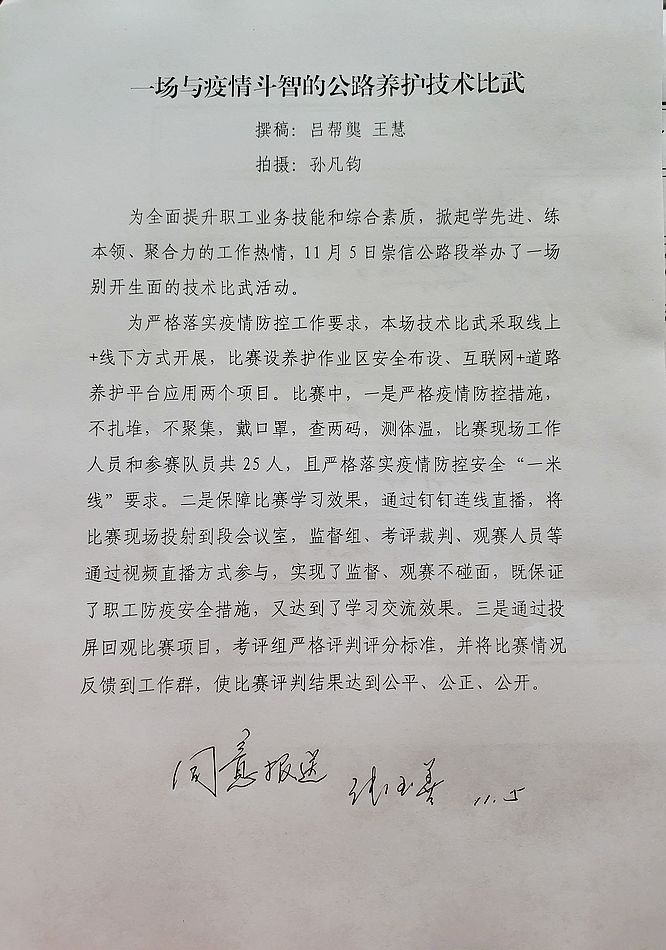 一场与疫情斗智的公路养护技术比武
撰稿：吕帮龑 王慧
拍摄：孙凡钧
为全面提升职工业务技能和综合素质，掀起学先进、练
本领、聚合力的工作热情，11 月 5 日崇信公路段举办了一场
别开生面的技术比武活动。
为严格落实疫情防控工作要求，本场技术比武采取线上
+线下方式开展，比赛设养护作业区安全布设、互联网+道路
养护平台应用两个项目。比赛中，一是严格疫情防控措施，
不扎堆，不聚集，戴口罩，查两码，测体温，比赛现场工作
人员和参赛队员共 25 人，且严格落实疫情防控安全“一米
线”要求。二是保障比赛学习效果，通过钉钉连线直播，将
比赛现场投射到段会议室，监督组、考评裁判、观赛人员等
通过视频直播方式参与，实现了监督、观赛不碰面，既保证
了职工防疫安全措施，又达到了学习交流效果。三是通过投
屏回观比赛项目，考评组严格评判评分标准，并将比赛情况
反馈到工作群，使比赛评判结果达到公平、公正、公开。
同意报送 11.5